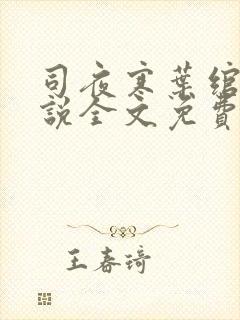 司夜寒葉綰
說全文免費
王春琦